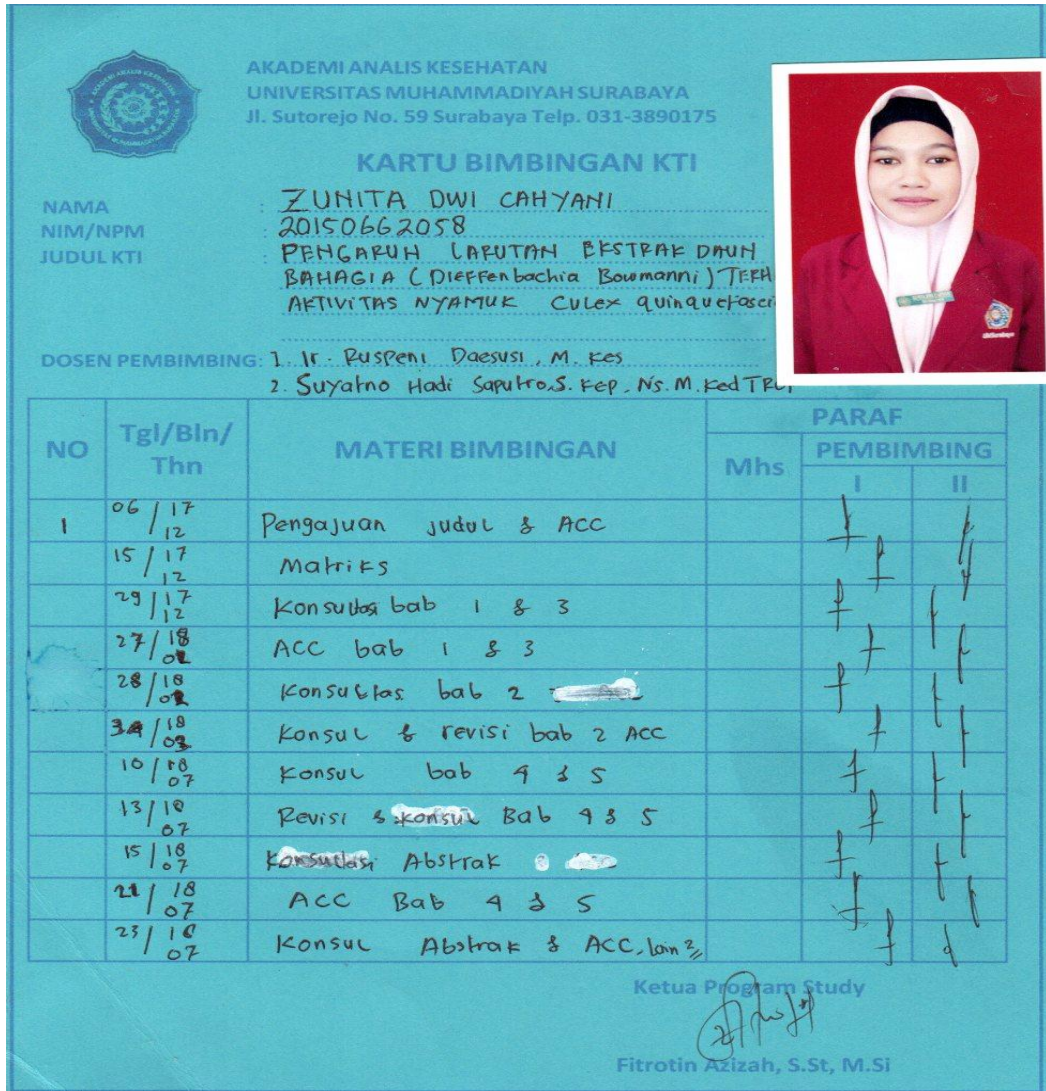 AKADEMI ANALIS KESEHATAN
UNIVERSITAS MUHAMMADIYAH SURABAYA
Jl. Sutorejo No. 59 Surabaya Telp. 031-3890175
KARTU BIMBINGAN KTI
NAMA : ZUNITA DWI CAHYANI
NIM/NPM : 20150662058
JUDUL KTI : PENGARUH LARUTAN EKSTRAK DAUN
BAHAGIA (Dieffenbachia Bowmanni) TERH
AKTIVITAS NYAMUK Culex quinquefasci
DOSEN PEMBIMBING: 1. Ir. Ruspeni Daesusi, M. Kes
2. Suyatno Hadi Saputro, S. Kep, Ns. M. Ked
NO Tgl/Bln/Thn MATERI BIMBINGAN PARAF
Mhs PEMBIMBING
I II
1 06/17 12 Pengajuan judul & ACC
15/17 12 Matriks
29/17 12 Konsultasi bab 1 & 3
27/18 ACC bab 1 & 3
28/18 bab 2
/18 03 Konsul & revisi bab 2 ACC
10/18 07 Konsul bab 4 & 5
13/18 07 Revisi & konsul Bab 4 & 5
15/18 07 Konsultasi Abstrak
21/18 07 ACC Bab 4 & 5
23/18 07 Konsul Abstrak & ACC, lain2
Ketua Program Study
Fitrotin Azizah, S.St, M.Si